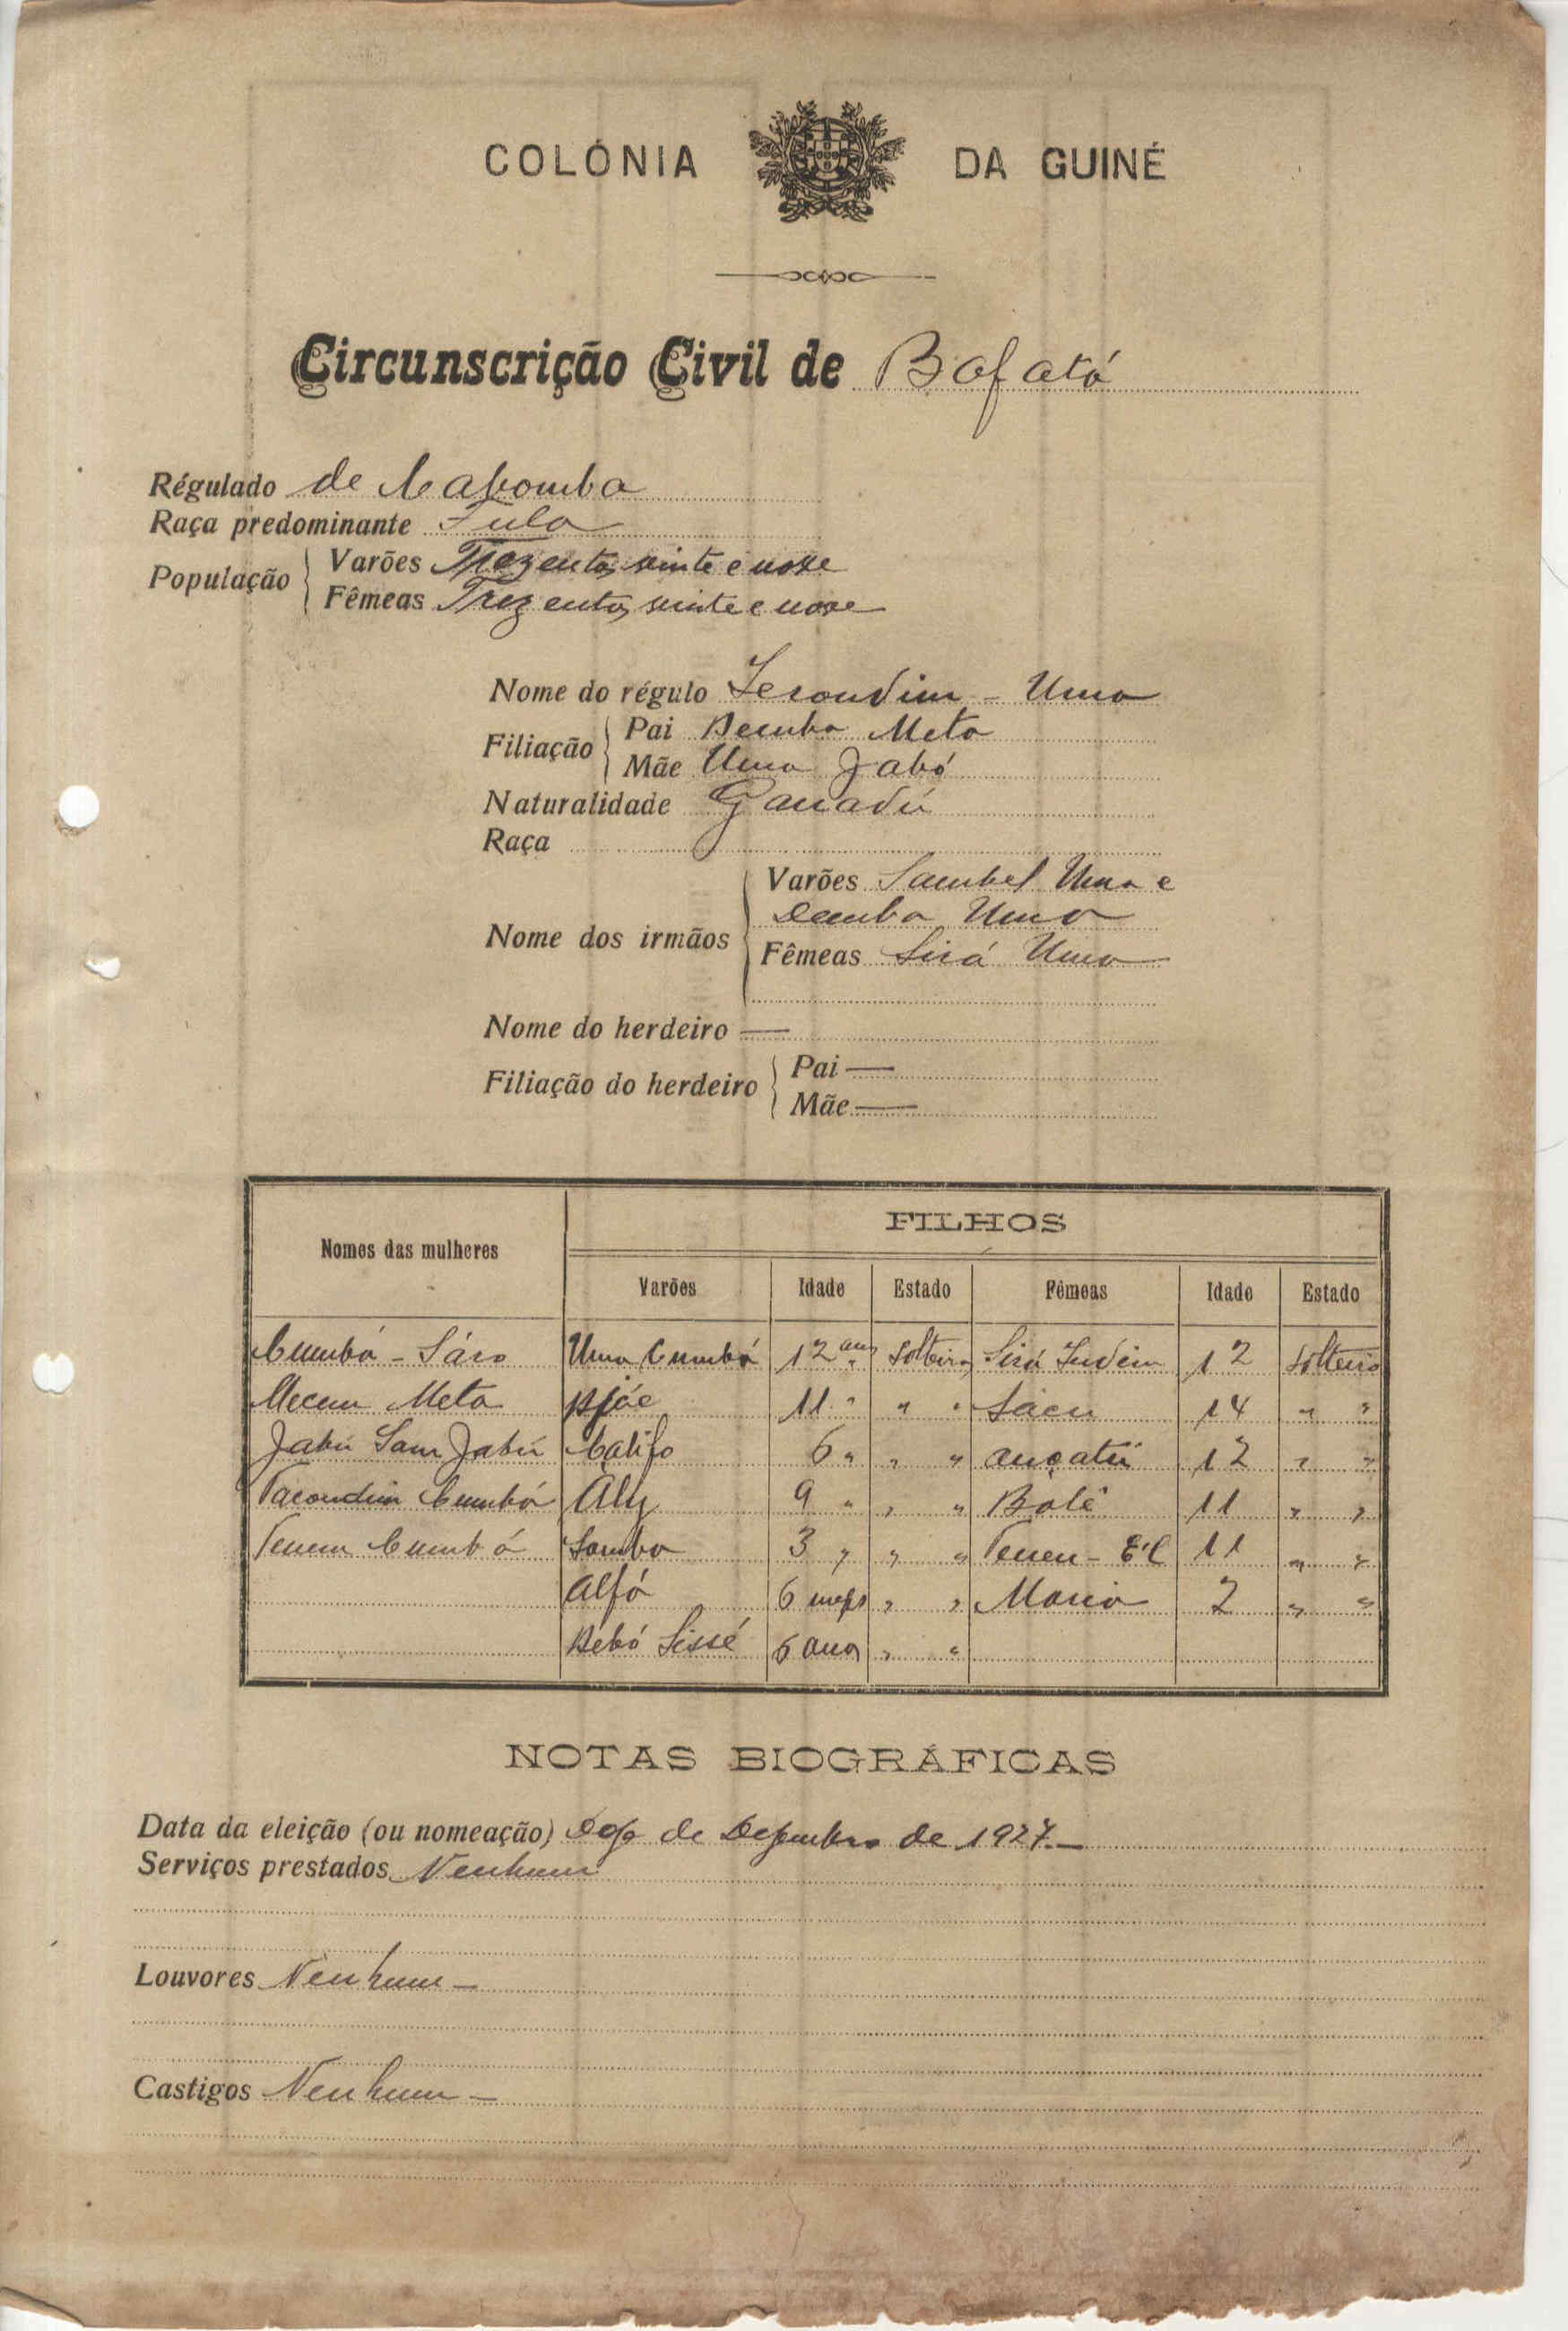 COLÓNIA DA GUINÉ
Circunscrição Civil de Bafatá
Régulado de
Raça predominante Fula
População
Varões Trezentos vinte e nove
Fêmeas Trezentos vinte e nove
Nome do régulo - Uma
Filiação
Pai Demba Meta
Mãe Uma Jabó
Naturalidade Ganadú
Raça
Nome dos irmãos
Varões Sambel Uma e
Demba Uma
Fêmeas Sirá Uma
Nome do herdeiro —
Filiação do herdeiro
Pai —
Mãe —
Nomes das mulheres FILHOS
Varões Idade Estado Fêmeas Idade Estado
Cumbá - Uma Cumbá 12 anos solteiro Sirá 12 solteiro
Meta 11 " " " 14 " "
Jabú Sam Jabú Califo 6 " " " 12 " "
Cumbá Aly 9 " " " 11 " "
Tenem Cumbá Samba 3 " " " 11 " "
Alfá 6 " " Maria 2 " "
Sissé 6 anos " "
NOTAS BIOGRÁFICAS
Data da eleição (ou nomeação) de Dezembro de 1927.—
Serviços prestados Nenhum
Louvores Nenhum —
Castigos Nenhum —